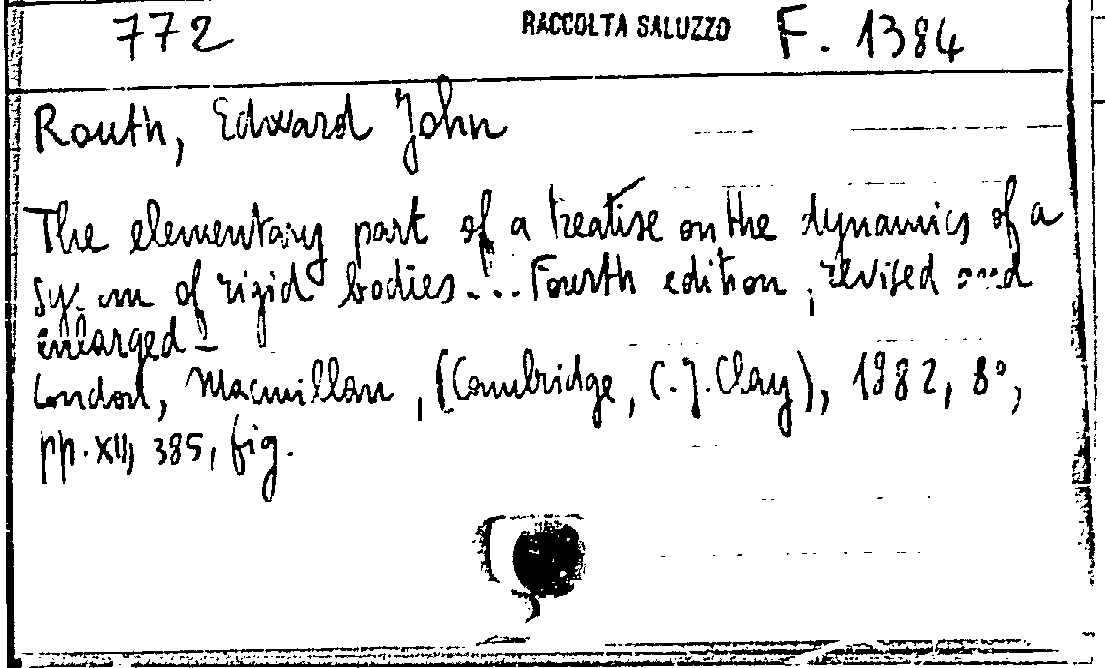 772 RACCOLTA SALUZZO F. 1384
Routh, Edward John
The elementary part of a treatise on the dynamics of a
of rigid bodies... Fourth edition, revised and
enlarged -
London, Macmillan, (Cambridge, C. J. Clay), 1882, 8°,
pp. XII, 385, fig.